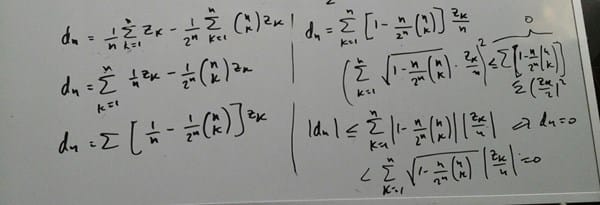 dₙ = 1/n ∑_{k=1}^{n} z_k − 1/2ⁿ ∑_{k=1}^{n} (n k) z_k
dₙ = ∑_{k=1}^{n} 1/n z_k − 1/2ⁿ (n k) z_k
dₙ = ∑ [1/n − 1/2ⁿ (n k)] z_k
dₙ = ∑_{k=1}^{n} [1 − n/2ⁿ (n k)] z_k/n
0
(∑_{k=1}^{n} √(1 − n/2ⁿ (n k)) · z_k/n)² ≤ ∑ [1 − n/2ⁿ (n k)]
∑ (z_k/2)²
|dₙ| ≤ ∑_{k=1}^{n} |1 − n/2ⁿ (n k)| |z_k/n| ⇒ dₙ = 0
< ∑_{k=1}^{n} √(1 − n/2ⁿ (n k)) |z_k/n| = 0